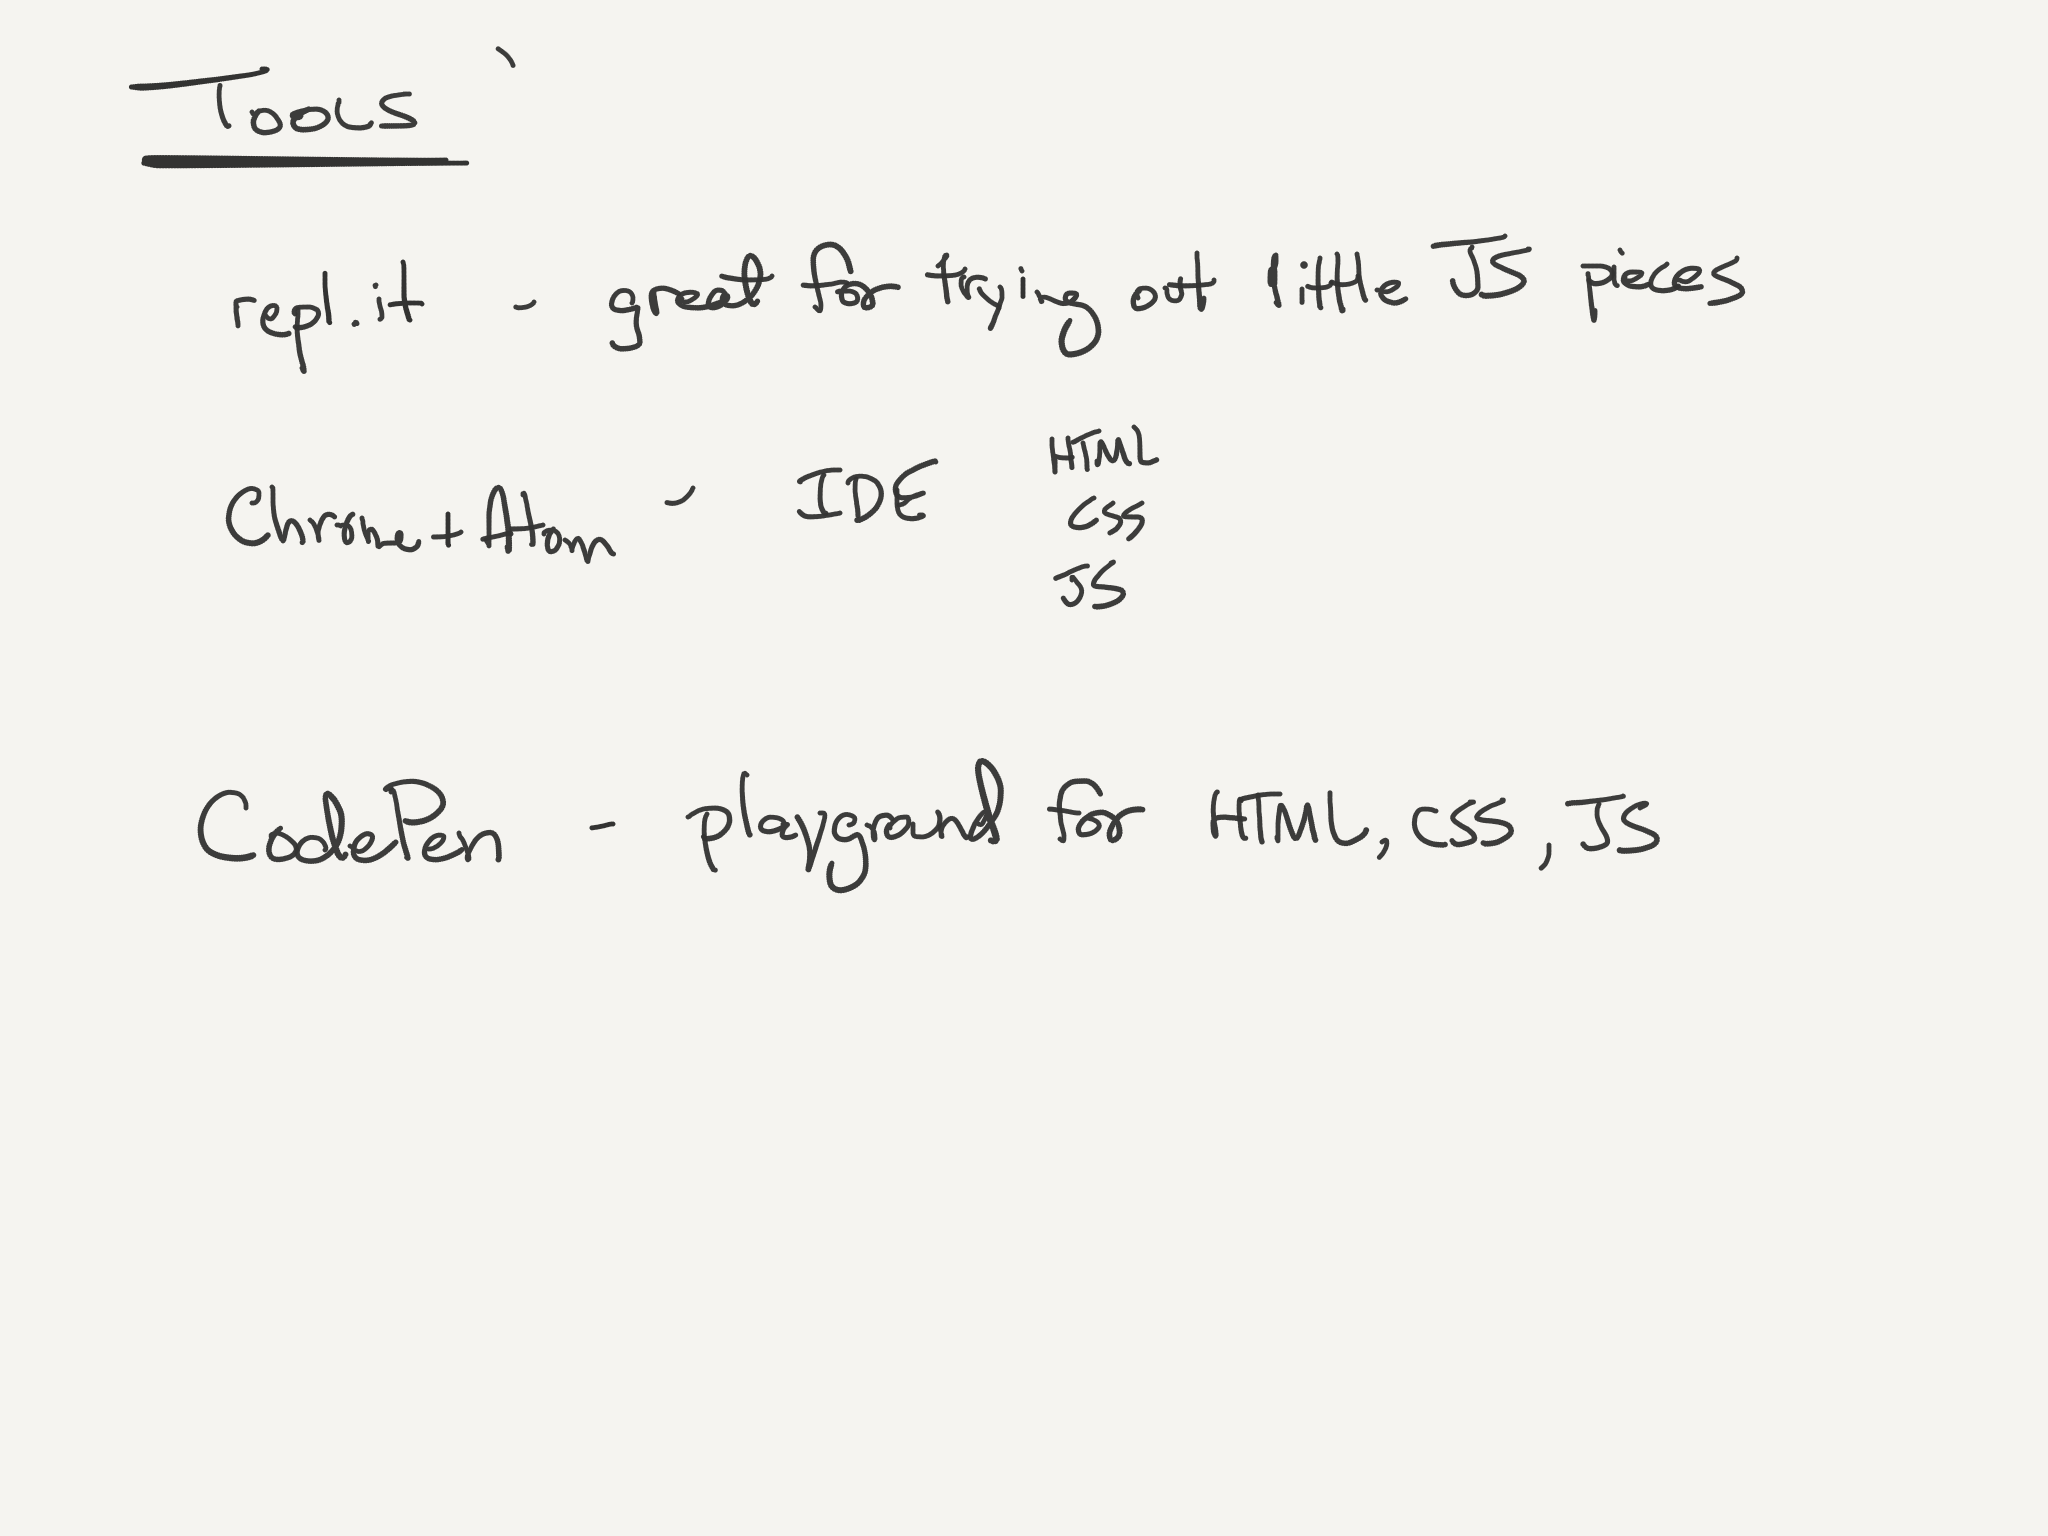 Tools
repl.it - great for trying out little JS pieces
Chrome + Atom - IDE HTML
CSS
JS
CodePen - playground for HTML, CSS, JS